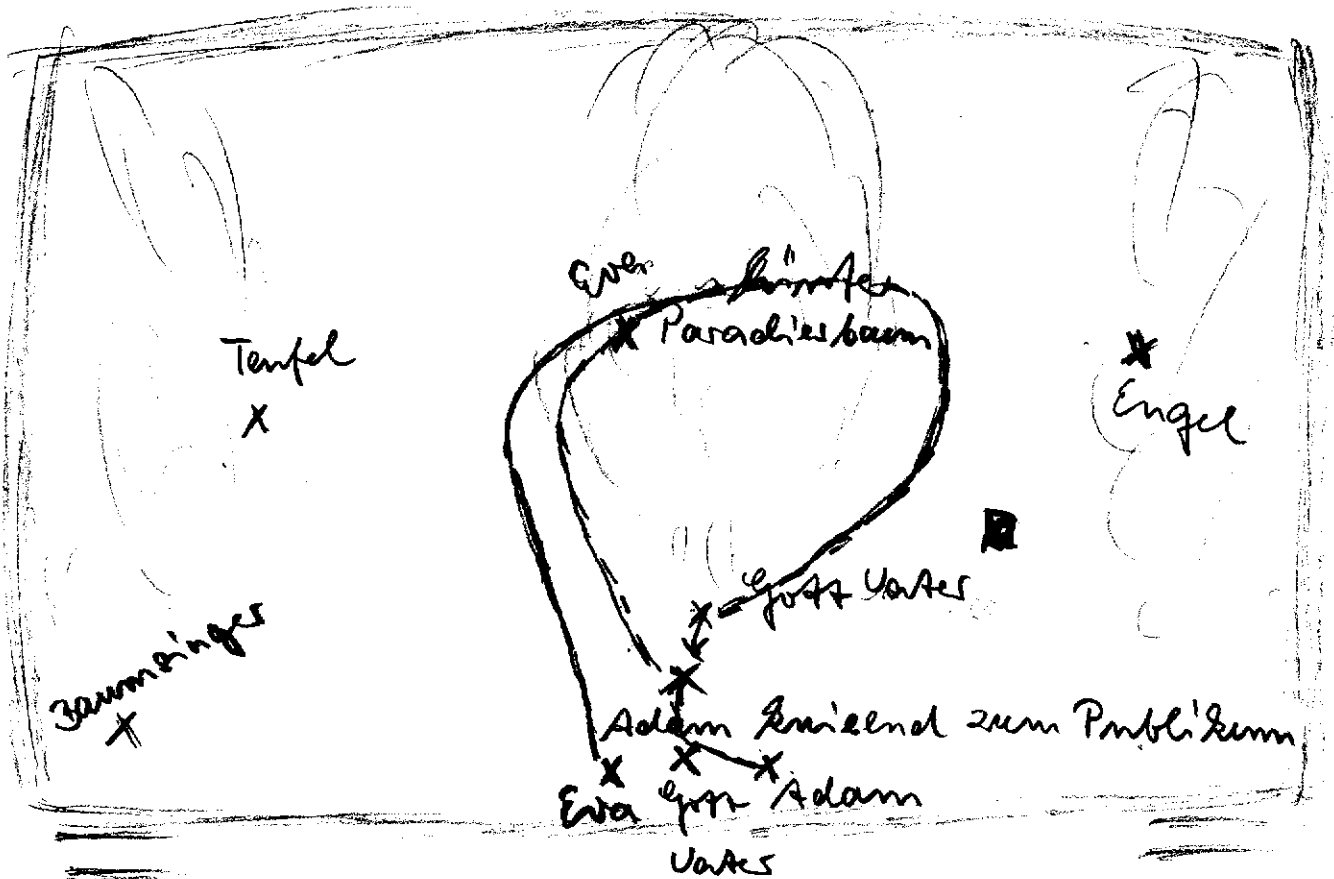 Eva hinter
Paradiesbaum
Teufel
Engel
Gott Vater
Baumsinger
Adam knieend zum Publikum
Eva Gott Adam
Vater